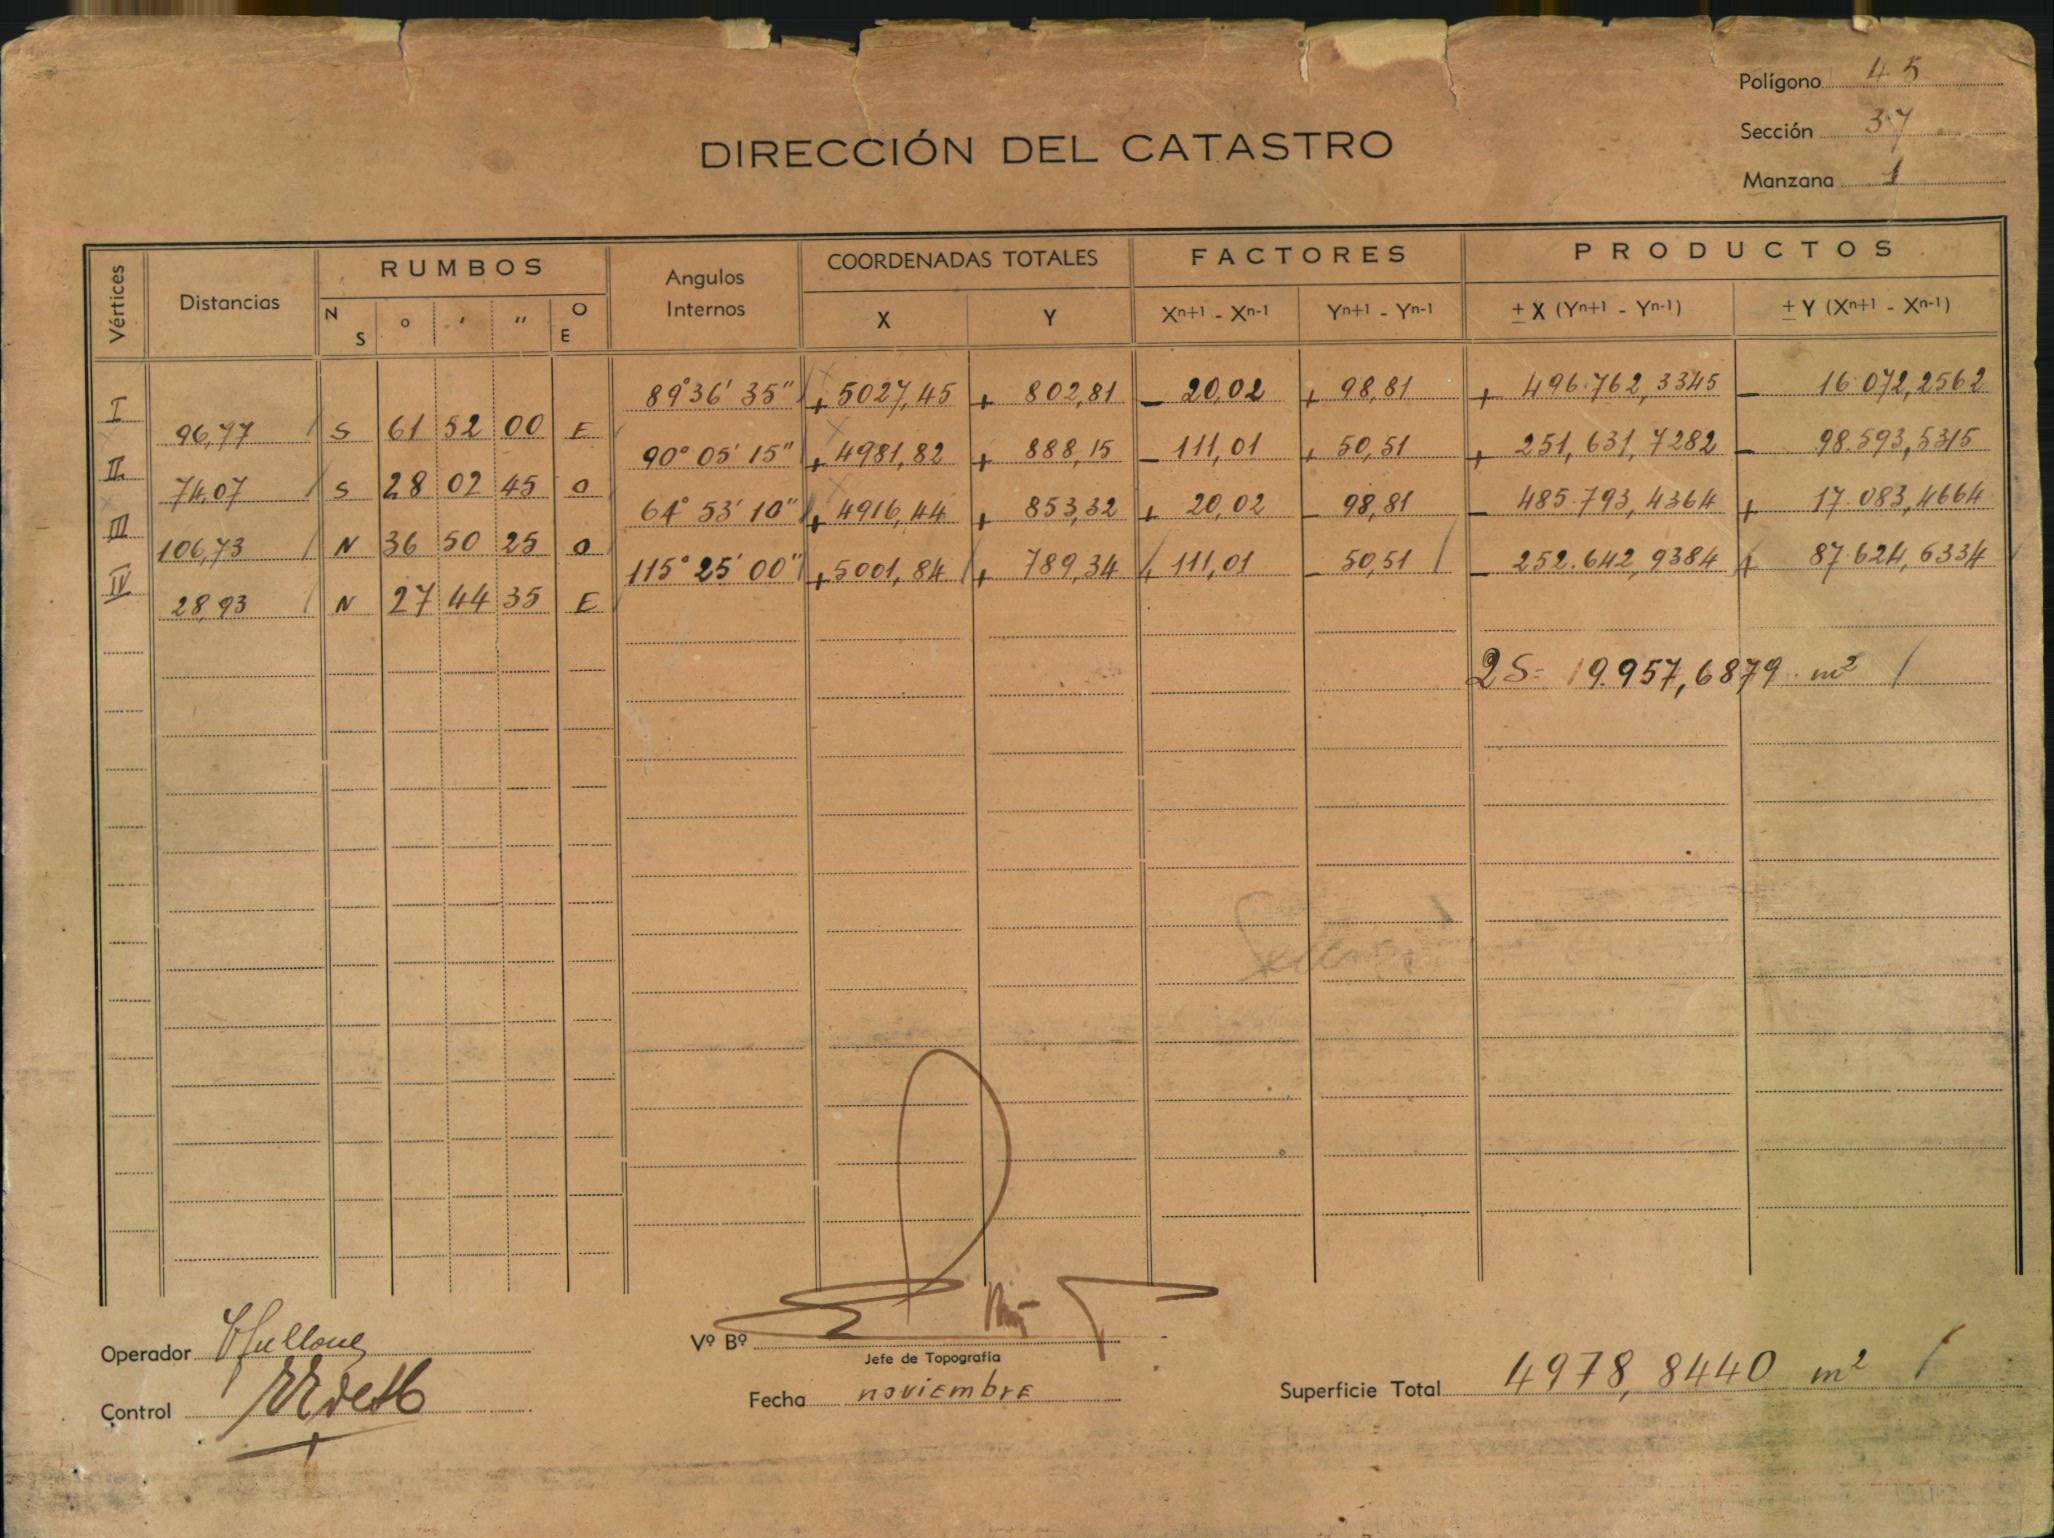 Polígono 45
Sección 37
Manzana 1
DIRECCIÓN DEL CATASTRO
Vértices Distancias RUMBOS Angulos Internos COORDENADAS TOTALES FACTORES PRODUCTOS
N S ° ' " O E X Y Xⁿ⁺¹ - Xⁿ⁻¹ Yⁿ⁺¹ - Yⁿ⁻¹ ± X (Yⁿ⁺¹ - Yⁿ⁻¹) ± Y (Xⁿ⁺¹ - Xⁿ⁻¹)
I 89°36'35" +5027,45 + 802,81 - 20,02 + 98,81 + 496.762,3345 - 16.072,2562
96,77 S 61 52 00 E
II 90°05'15" +4981,82 + 888,15 - 111,01 + 50,51 + 251,631,7282 - 98.593,5315
74,07 S 28 02 45 O
III 64°53'10" +4916,44 + 853,32 + 20,02 - 98,81 - 485.793,4364 + 17.083,4664
106,73 N 36 50 25 O
IV 115°25'00" +5001,84 + 789,34 + 111,01 - 50,51 - 252.642,9384 + 87.624,6334
28,93 N 27 44 35 E
2S= 19.957,6879 m²
Operador
Control
Vº Bº
Jefe de Topografía
Fecha noviembre
Superficie Total 4978,8440 m²